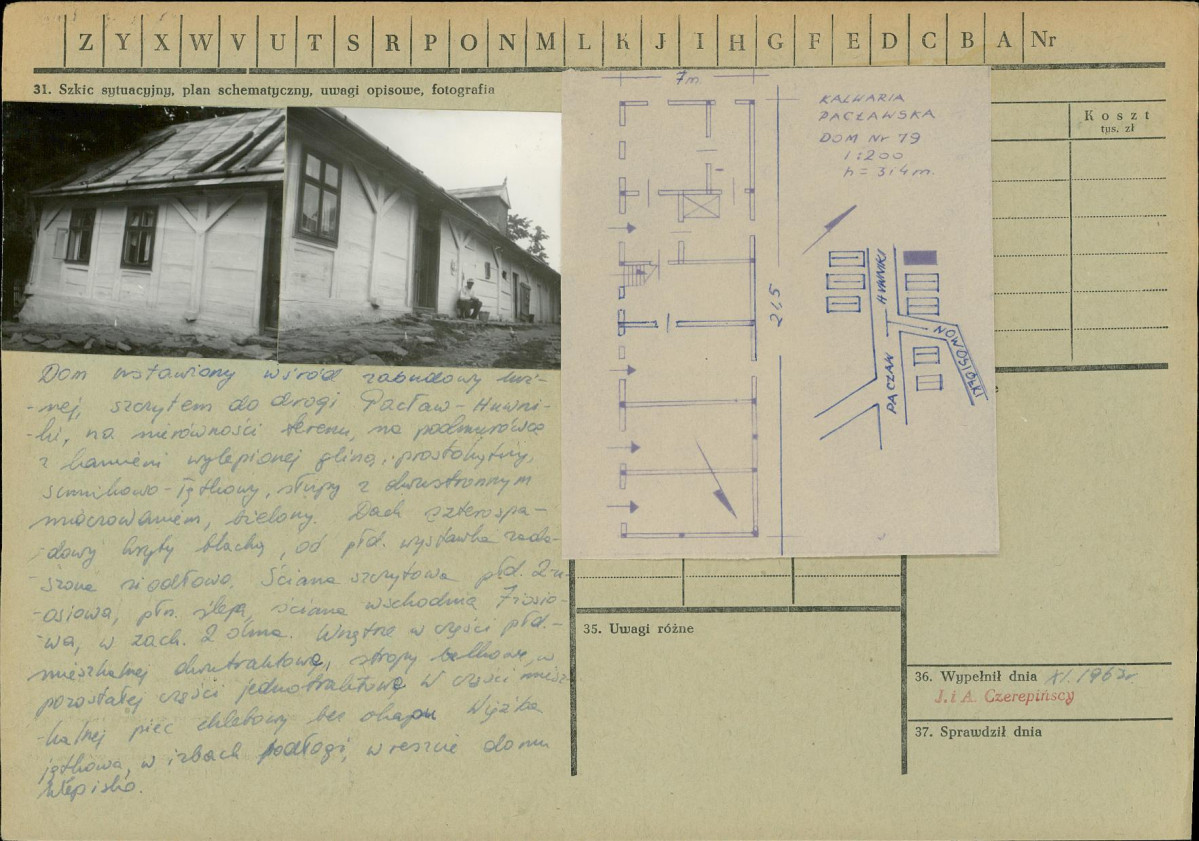 Z Y X W V U T S R P O N M L K J I H G F E D C B A Nr
31. Szkic sytuacyjny, plan schematyczny, uwagi opisowe, fotografia
Koszt
tys. zł
7m.
KALWARIA
PACŁAWSKA
DOM Nr 79
1:200
h = 3,4 m.
21,5
HUWNIKI
PACŁAW
Dom wstawiony wśród zabudowy luź-
-nej, szczytem do drogi Pacław-Huwni-
-ki, na nierówności terenu, na podmurówce
z kamieni wylepionej gliną, prostokątny,
sumikowo-łątkowy, słupy z dwustronnym
mieczowaniem, bielony. Dach czterospa-
-dowy kryty blachą, od płd. wystawka zada-
-szona siodłowo. Ściana szczytowa płd. 2-u
-osiowa, płn. ślepa, ściana wschodnia 7iosio-
-wa, w zach. 2 okna. Wnętrze w części płd.-
mieszkalnej dwutraktowe, stropy belkowe, w
pozostałej części jednotraktowe. W części miesz-
-kalnej piec chlebowy bez okapu. Więźba
jętkowa, w izbach podłogi, w reszcie domu
klepisko.
35. Uwagi różne
36. Wypełnił dnia XI. 1963r.
J. i A. Czerepińscy
37. Sprawdził dnia